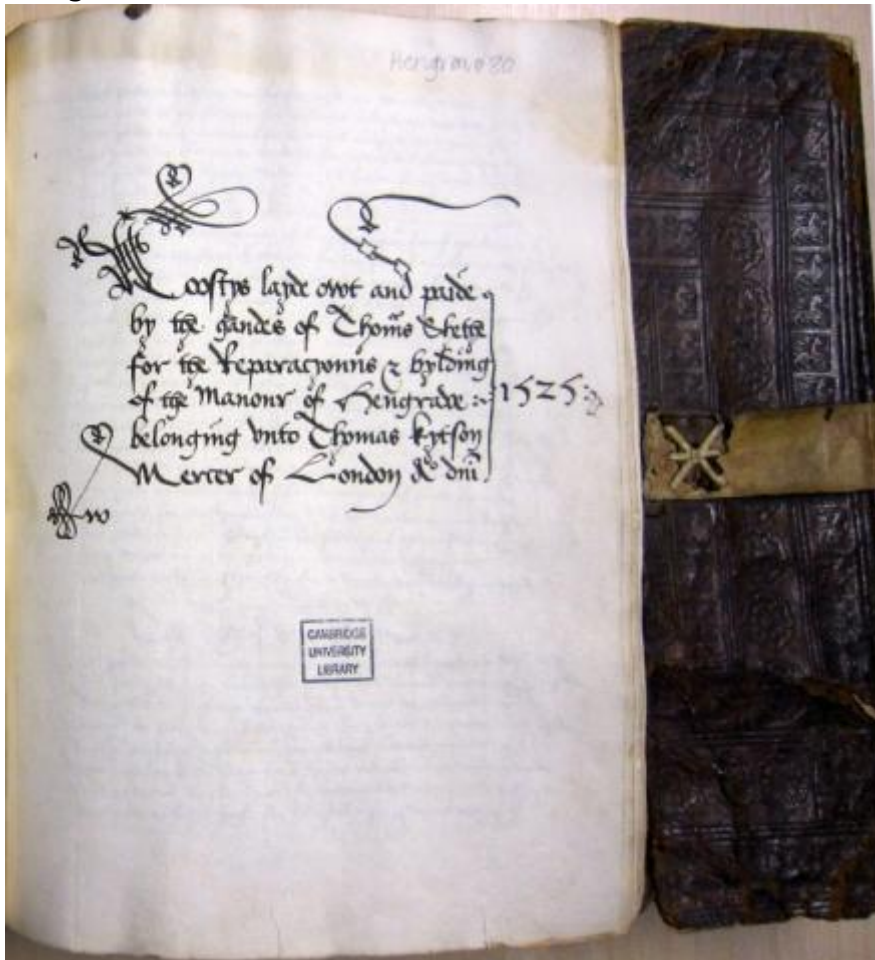 Hengrave 80
Coostys layde owt and paide
by the handes of Thomas Skette
for the Reparacyonns & bylding
of the Manour of Hengrave
belonging vnto Thomas Kytson
Mercer of London Ao dni
1525
CAMBRIDGE
UNIVERSITY
LIBRARY